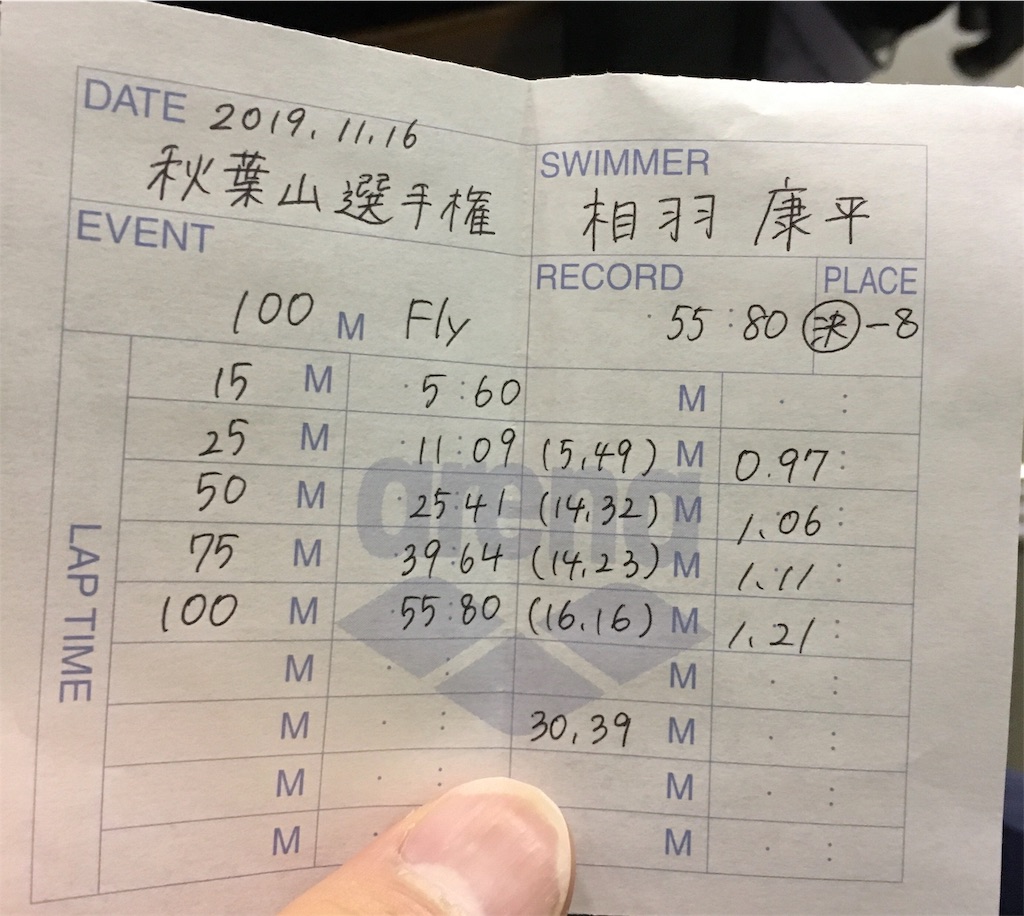 DATE 2019.11.16
秋葉山選手権
SWIMMER
相羽 康平
EVENT
100 M Fly
RECORD
55:80
PLACE
決-8
LAP TIME
15 M 5:60 M
25 M 11:09 (5,49) M 0.97
50 M 25:41 (14,32) M 1.06
75 M 39:64 (14,23) M 1.11
100 M 55:80 (16,16) M 1.21
M M
M 30,39 M
M M
M M
arena